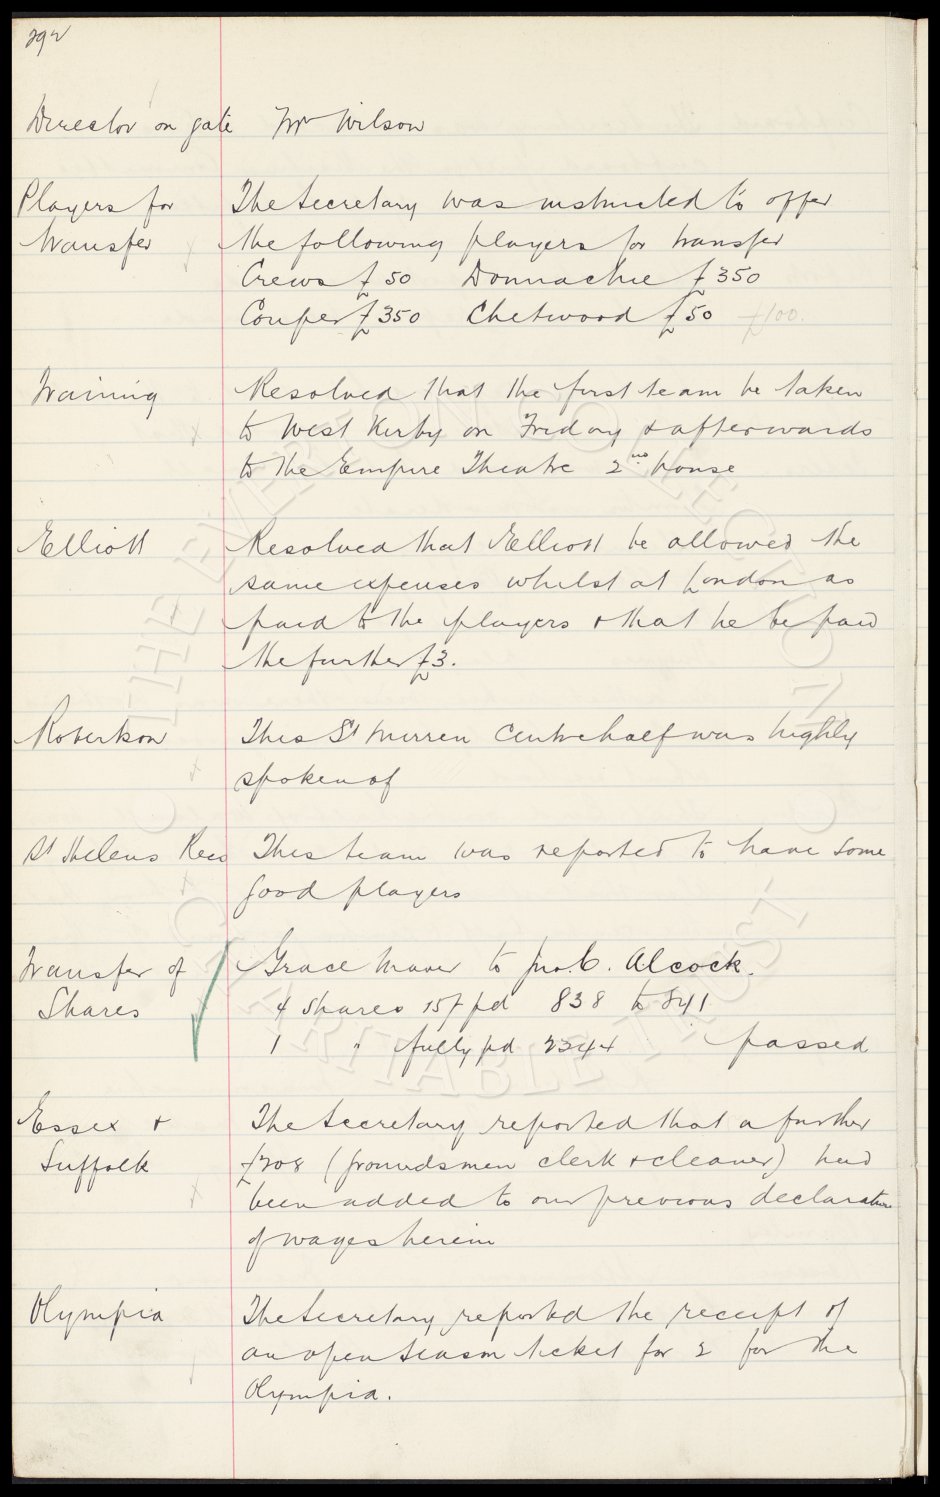 292
Director on gate Mr Wilson
Players for The Secretary was instructed to offer
transfer the following players for transfer
Crews £50 Donnachie £350
Couper £350 Chetwood £50 £100.
Training Resolved that the first team be taken
to West Kirby on Friday & afterwards
to the Empire Theatre 2nd house
Elliott Resolved that Elliott be allowed the
same expenses whilst at London as
paid to the players & that he be paid
the further £3.
Robertson This St Mirren Centre half was highly
spoken of
St Helens Recs This team was reported to have some
good players
Transfer of Grace Mauer to Jno. C. Alcock.
Shares 4 shares 15/- pd 838 to 841
1 " fully pd 2344 passed
Essex & The Secretary reported that a further
Suffolk £208 (groundsmen clerk & cleaner) had
been added to our previous declaration
of wages herein
Olympia The Secretary reported the receipt of
an open season ticket for 2 for the
Olympia.
THE EVERTON COLLECTION
CHARITABLE TRUST